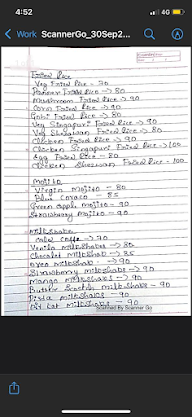 4:51
4G
Work
ScannerGo_30Sep2...
Fried Rice
Veg Fried Rice - 70
Paneer Fried Rice -> 80
Mushroom Fried Rice -> 90
Corn Fried Rice -> 90
Gobi Fried Rice -> 80
Veg Singapur Fried Rice -> 90
Veg Shezwan Fried Rice -> 80
Chicken Fried Rice -> 90
Chicken Singapuri Fried Rice -> 100
Egg Fried Rice - 80
Chicken Shezwan Fried Rice - 100
Mojito
Virgin Mojito - 80
Blue - 85
Green apple Mojito - 90
Strawberry Mojito - 90
Milkshake
Cold Coffe -> 70
Venila Milkshakes -> 80
Chocolet Milkshak -> 85
Oreo Milkshak -> 90
Strawberry milkshake -> 90
Mango Milkshakes -> 90
Butter Scotch milkshake - 90
Pista milkshakes - 90
Kit kat milkshakes - 90
Scanned By Scanner Go